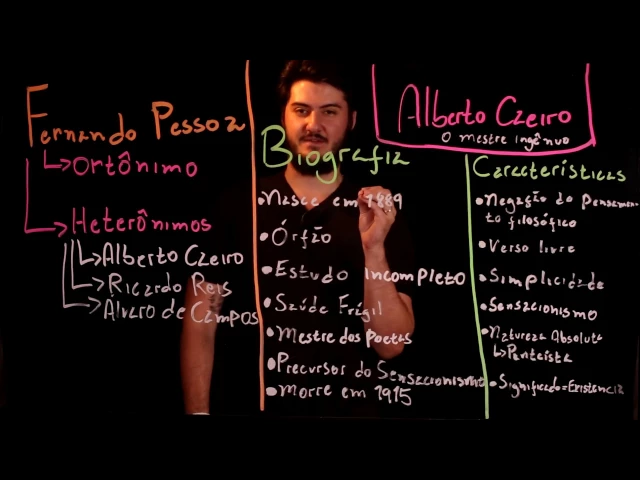 Fernando Pessoa
Ortônimo
Heterônimos
Alberto Caeiro
Ricardo Reis
Álvaro de Campos
Alberto Caeiro
O mestre ingênuo
Biografia
• Nasce em 1889
• Órfão
• Estudo incompleto
• Saúde Frágil
• Mestre dos Poetas
• Precursor do Sensacionismo
• Morre em 1915
Características
• Negação do Pensamen-
to filosófico
• Verso livre
• Simplicidade
• Sensacionismo
• Natureza Absoluta
Panteísta
• Significado=Existência